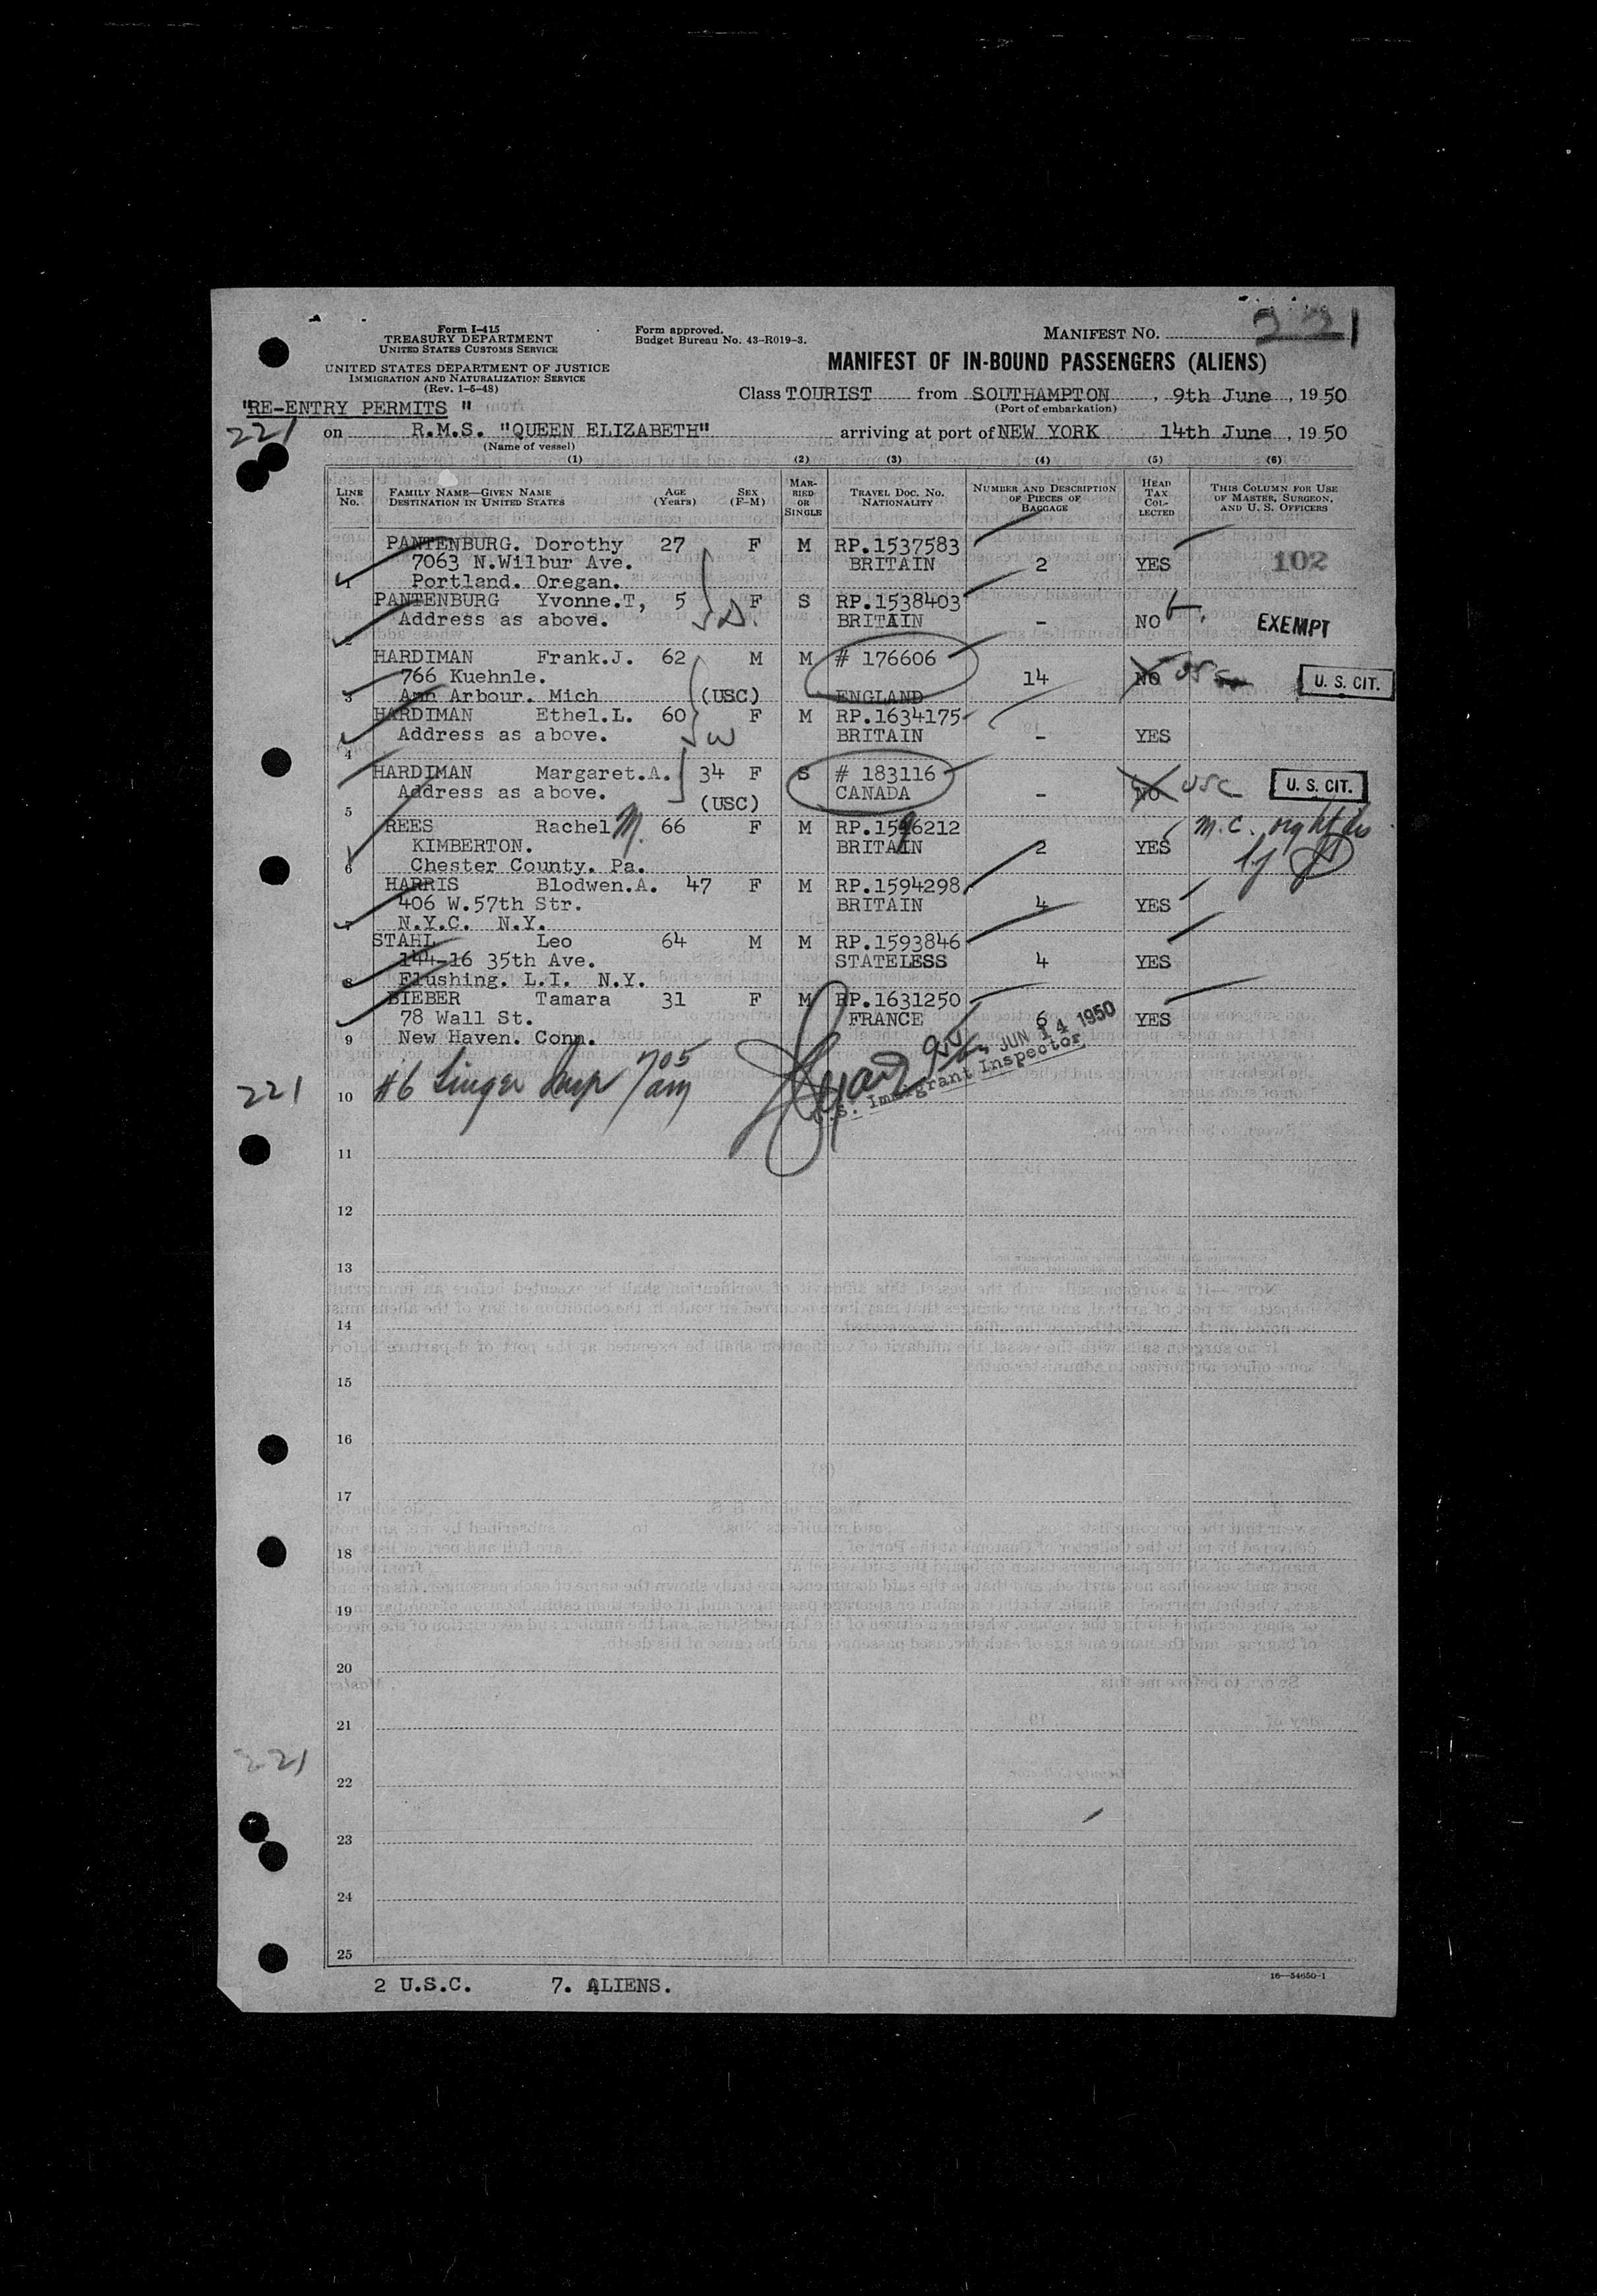 Form I-415
TREASURY DEPARTMENT
UNITED STATES CUSTOMS SERVICE
UNITED STATES DEPARTMENT OF JUSTICE
IMMIGRATION AND NATURALIZATION SERVICE
(Rev. 1-5-48)
Form approved.
Budget Bureau No. 43-R019-3.
MANIFEST NO. 221
MANIFEST OF IN-BOUND PASSENGERS (ALIENS)
Class TOURIST from SOUTHAMPTON, 9th June, 1950
(Port of embarkation)
"RE-ENTRY PERMITS "
221
on R.M.S. "QUEEN ELIZABETH" arriving at port of NEW YORK 14th June, 1950
(Name of vessel)
(1) (2) (3) (4) (5) (6)
LINE No. FAMILY NAME—GIVEN NAME DESTINATION IN UNITED STATES AGE (Years) SEX (F-M) MARRIED OR SINGLE TRAVEL DOC. NO. NATIONALITY NUMBER AND DESCRIPTION OF PIECES OF BAGGAGE HEAD TAX COLLECTED THIS COLUMN FOR USE OF MASTER, SURGEON, AND U. S. OFFICERS
PANTENBURG. Dorothy 27 F M RP.1537583
7063 N.Wilbur Ave. BRITAIN 2 YES 102
1 Portland. Oregan.
PANTENBURG Yvonne.T, 5 F S RP.1538403
Address as above. BRITAIN - NO EXEMPT
2
HARDIMAN Frank.J. 62 M M # 176606
766 Kuehnle. 14 NO U. S. CIT.
3 Ann Arbour. Mich (USC) ENGLAND
HARDIMAN Ethel.L. 60 F M RP.1634175
Address as above. W BRITAIN - YES
4
HARDIMAN Margaret.A. 34 F S # 183116
Address as above. (USC) CANADA - NO USC U. S. CIT.
5
REES Rachel M. 66 F M RP.1596212 M.C.
KIMBERTON. BRITAIN 2 YES
6 Chester County. Pa.
HARRIS Blodwen.A. 47 F M RP.1594298
406 W.57th Str. BRITAIN 4 YES
7 N.Y.C. N.Y.
STAHL Leo 64 M M RP.1593846
144-16 35th Ave. STATELESS 4 YES
8 Flushing. L.I. N.Y.
BIEBER Tamara 31 F M RP.1631250
78 Wall St. FRANCE 6 YES
9 New Haven. Conn.
JUN 14 1950
U.S. Immigrant Inspector
221
10 #6
11
12
13
14
15
16
17
18
19
20
21
221
22
23
24
25
2 U.S.C. 7. ALIENS.
16—54650-1